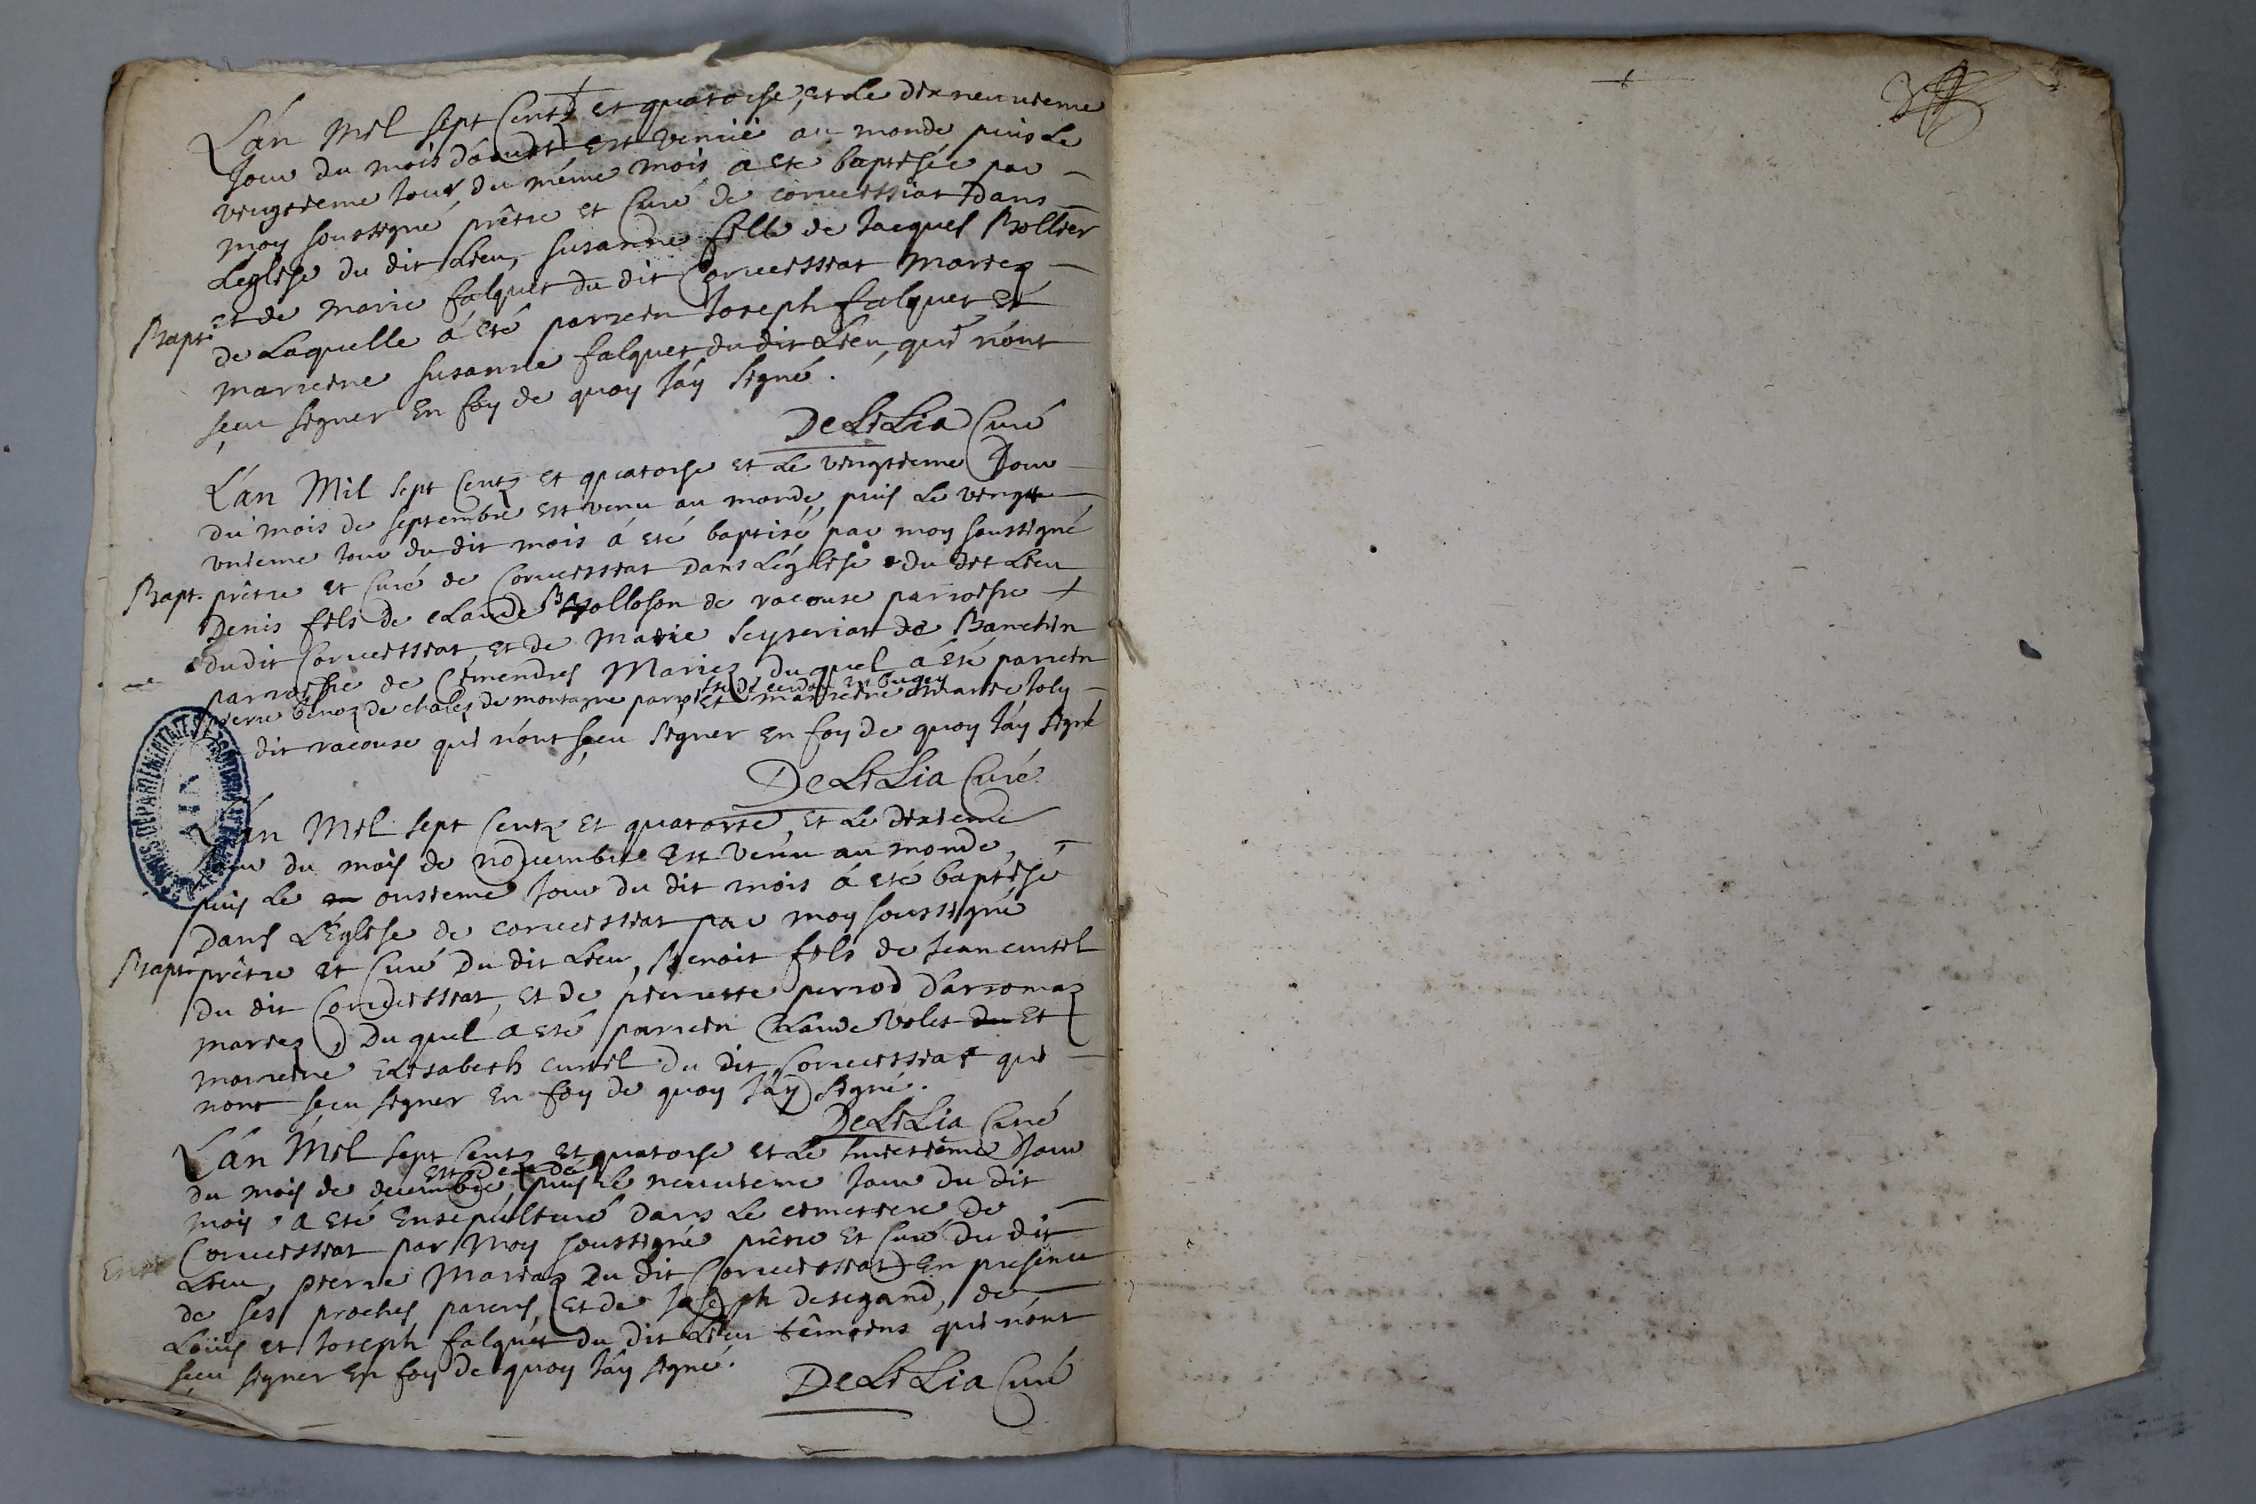 L'an Mil sept Centz et quatorse, et Le dixneuvieme
Jour du mois d'aoust est venüe au monde puis Le
vingtieme Jour du même mois a eté baptisée par
moy soussigné prêtre et Curé de corveissiat dans
Leglise du dit Lieu, susanne fille de Jacques Bollier
et de marie falquet du dit Corveissiat mariez
Bapt.
de Laquelle á eté parrein Joseph falquet et
marreine susanne falquet du dit Lieu, qui n'ont
sçeu signer En foy de quoy J'áy signé.
De LiLia Curé
L'an Mil sept Centz et quatorse et Le vingtieme Jour
du mois de septembre est venu au monde, puis Le vingt
unieme Jour du dit mois á eté baptisé par moy soussigné
Bapt. prêtre et Curé de Corveissiat Dans L'église du dit Lieu
Denis fils de claude Bolloson de racouse parroisse
du dit Corveissiat, et de Marie seyseriat de Banchin
parroisse de Cemendres Mariez du quel á eté parrein
pierre benoz de chaley de montagne parroisse de en bugey et marreine marie Joly
dit racouse qui n'ont sçeu signer En foy de quoy J'áy signé
De LiLia Curé
L'an Mil sept Centz et quatorse, et Le dixieme
Jour du mois de novembre Est venu au monde,
puis Le onsieme Jour du dit mois á eté baptisé
Dans L'Eglise de corveissiat par moy soussigné
Bapt. prêtre et Curé Du dit Lieu, Benoit fils de Jean curtil
du dit Corveissiat, et de pierrette perrod d'arromaz
mariez, Du quel a eté parrein Claude Volet du Et
marreine Elisabeth curtil du dit Corveissiat qui
n'ont sçeu signer En foy de quoy J'áy signé.
De LiLia Curé
L'an Mil sept Centz et quatorse et Le huictieme Jour
du mois de decembre, est decedé puis le neuvieme Jour du dit
mois a eté Ensepulturé dans Le cimetiere de
Corveissiat par Moy soussigné prêtre et Curé du dit
Lieu, pierre Mariaz Du dit Corveissiat En presence
de ses proches parens Et de Joseph desegand, de
Loüis et Joseph falquet du dit Lieu têmoins qui n'ont
sçeu signer En foy de quoy J'áy signé.
De LiLia Curé
ARCHIVES DÉPARTEMENTALES
AIN